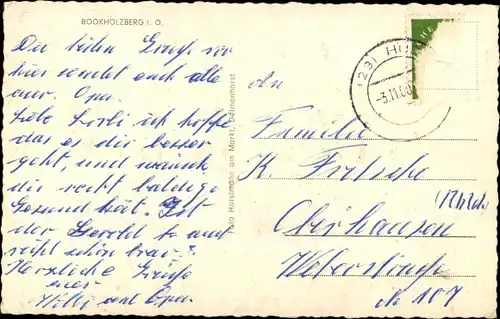 BOOKHOLZBERG i. O.
Die besten Grüße von
hier sendet euch alle
eur. Opa.
Lieb ich hoffe
das es dir besser
geht, und wünsch
dir recht baldige
Gesund heit. Ist
der Gerold so auch
schön brav?
Herzliche Grüße
euer
Willi und Opa.
Foto Horstmann am Markt, Delmenhorst
(23) HU
-3.11.60
An
Familie
K. Fritsche
(Rhld)
Oberhausen
Weberstraße
№ 107